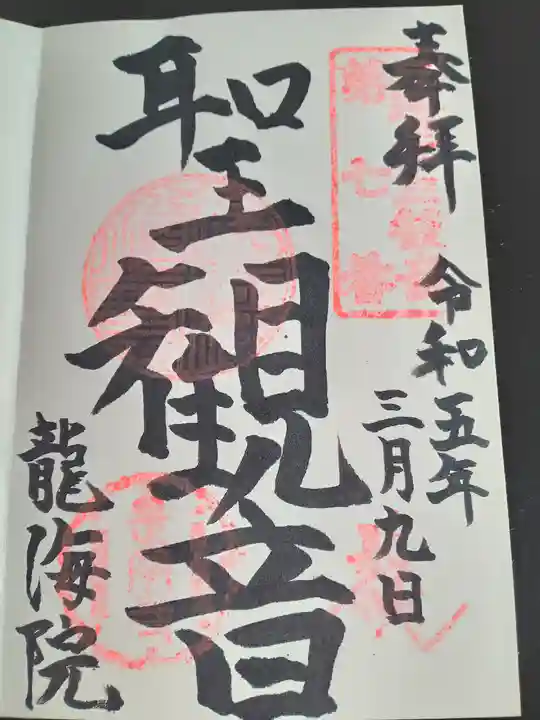 奉拝
令和五年
三月九日
第七番
聖観音
龍海院